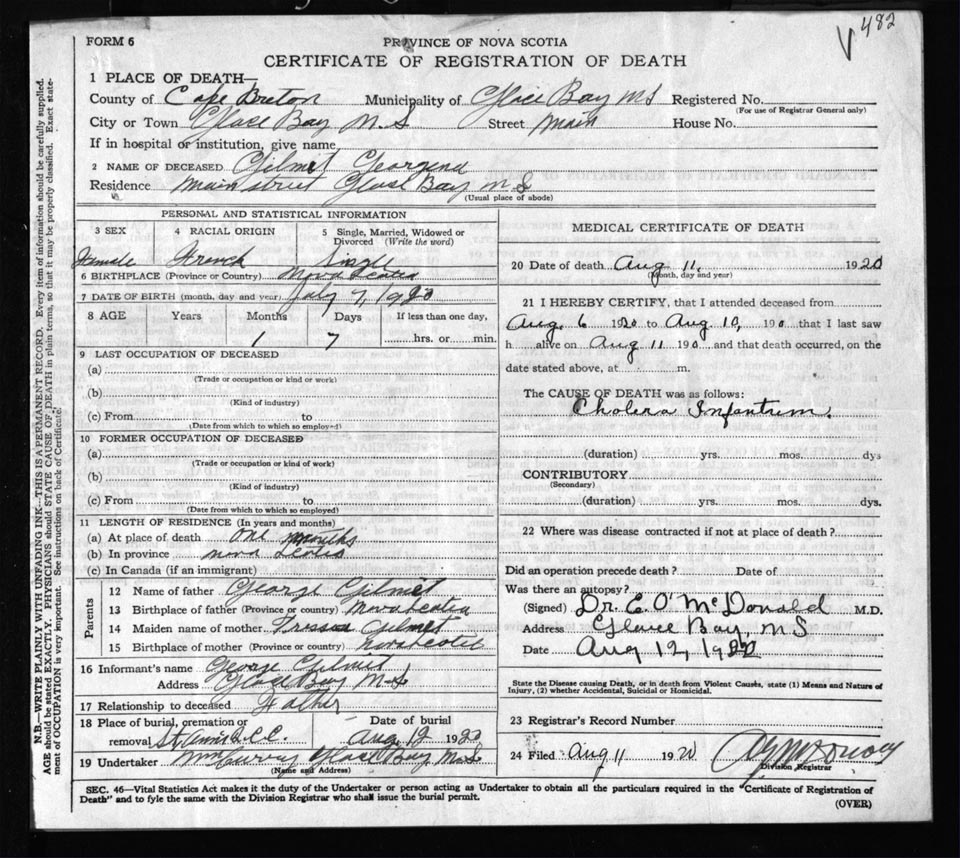 V 482
FORM 6
PROVINCE OF NOVA SCOTIA
CERTIFICATE OF REGISTRATION OF DEATH
1 PLACE OF DEATH—
County of Cape Breton Municipality of Glace Bay NS Registered No.
(For use of Registrar General only)
City or Town Glace Bay N.S Street Main House No.
If in hospital or institution, give name
2 NAME OF DECEASED Gilmet Georgena
Residence Main street Glace Bay N S
(Usual place of abode)
PERSONAL AND STATISTICAL INFORMATION
3 SEX 4 RACIAL ORIGIN 5 Single, Married, Widowed or Divorced (Write the word)
Female French Single
6 BIRTHPLACE (Province or Country) Nova Scotia
7 DATE OF BIRTH (month, day and year) July 7, 1920
8 AGE Years Months Days If less than one day,
1 7 hrs. or min.
9 LAST OCCUPATION OF DECEASED
(a)
(Trade or occupation or kind or work)
(b)
(Kind of industry)
(c) From to
(Date from which to which so employed)
10 FORMER OCCUPATION OF DECEASED
(a)
(Trade or occupation or kind of work)
(b)
(Kind of industry)
(c) From to
(Date from which to which so employed)
11 LENGTH OF RESIDENCE (In years and months)
(a) At place of death one months
(b) In province nova Scotia
(c) In Canada (if an immigrant)
Parents
12 Name of father George Gilmet
13 Birthplace of father (Province or country) Nova Scotia
14 Maiden name of mother Gilmet
15 Birthplace of mother (Province or country) Nova Scotia
16 Informant's name George Gilmet
Address Glace Bay N.S
17 Relationship to deceased Father
18 Place of burial, cremation or removal Date of burial
Aug 12 1920
19 Undertaker Glace Bay N.S
(Name and Address)
MEDICAL CERTIFICATE OF DEATH
20 Date of death Aug 11, 1920
(Month, day and year)
21 I HEREBY CERTIFY, that I attended deceased from
Aug. 6 1920 to Aug 10, 190 that I last saw
h alive on Aug 11 190 and that death occurred, on the
date stated above, at m.
The CAUSE OF DEATH was as follows:
Cholera Infantum.
(duration) yrs. mos. dys
CONTRIBUTORY
(Secondary)
(duration) yrs. mos. dys.
22 Where was disease contracted if not at place of death?
Did an operation precede death? Date of
Was there an autopsy?
(Signed) Dr. E. O' McDonald M.D.
Address Glace Bay, NS
Date Aug 12, 1920
State the Disease causing Death, or in death from Violent Causes, state (1) Means and Nature of Injury, (2) whether Accidental, Suicidal or Homicidal.
23 Registrar's Record Number
24 Filed Aug 11 1920
Division Registrar
SEC. 46—Vital Statistics Act makes it the duty of the Undertaker or person acting as Undertaker to obtain all the particulars required in the "Certificate of Registration of
Death" and to fyle the same with the Division Registrar who shall issue the burial permit.
(OVER)
N.B.—WRITE PLAINLY WITH UNFADING INK—THIS IS A PERMANENT RECORD. Every item of information should be carefully supplied.
AGE should be stated EXACTLY. PHYSICIANS should STATE CAUSE OF DEATH in plain terms, so that it may be properly classified. Exact state-
ment of OCCUPATION is very important. See instructions on back of Certificate.